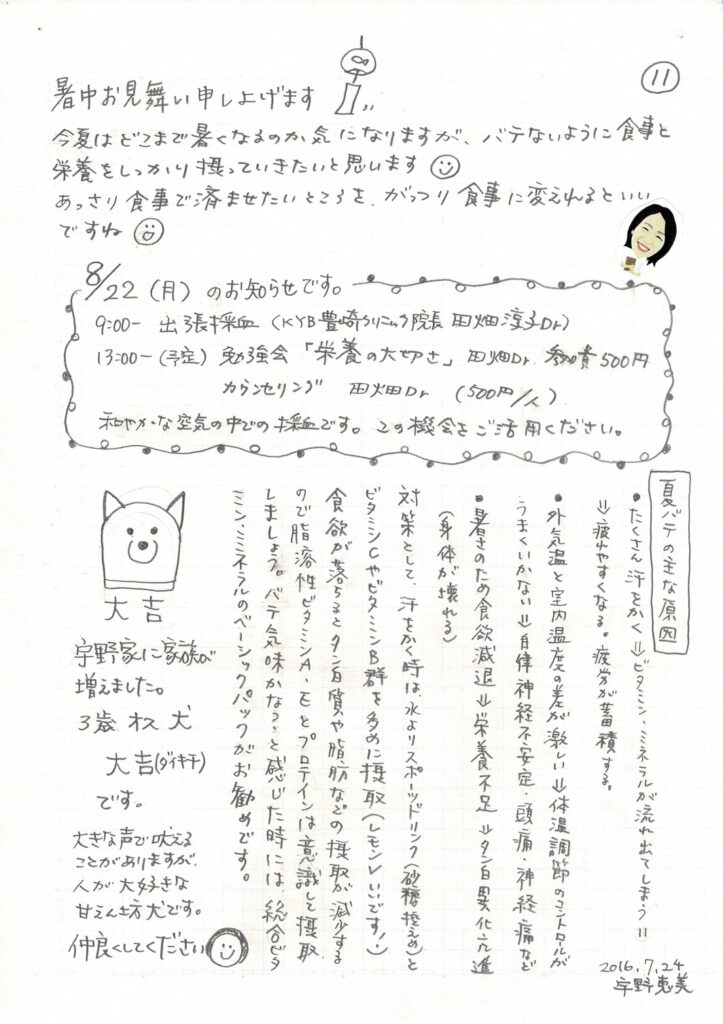 ⑪
暑中お見舞い申し上げます
今夏はどこまで暑くなるのか気になりますが、バテないように食事と
栄養をしっかり摂っていきたいと思います
あっさり食事で済ませたいところを、がっつり食事に変えれるといい
ですね
8/22(月)のお知らせです。
9:00- 出張採血(KYB豊崎クリニック院長 田畑淳子Dr)
13:00-(予定) 勉強会「栄養の大切さ」田畑Dr. 参加費500円
カウンセリング 田畑Dr (500円/人)
和やかな空気の中での採血です。この機会をご活用ください。
夏バテの主な原因
•たくさん汗をかく⇒ビタミン、ミネラルが流れ出てしまう=
⇒疲れやすくなる。疲労が蓄積する。
•外気温と室内温度の差が激しい⇒体温調節のコントロールが
うまくいかない⇒自律神経不安定・頭痛・神経痛など
•暑さのため食欲減退⇒栄養不足⇒タン白異化亢進
(身体が壊れる)
対策として、汗をかく時は、水よりスポーツドリンク(砂糖控えめ)と
ビタミンCやビタミンB群を多めに摂取(レモンいいです!)
食欲が落ちるとタン白質や脂肪などの摂取が減少する
ので脂溶性ビタミンA・Eとプロテインは意識して摂取
しましょう。バテ気味かなぁ〜と感じた時には、総合ビタ
ミン、ミネラルのベーシックパックがお勧めです。
大吉
宇野家に家族が
増えました。
3歳 オス 犬
大吉(ダイキチ)
です。
大きな声で吠える
ことがありますが、
人が大好きな
甘えん坊犬です。
仲良くしてください
2016.7.24
宇野恵美